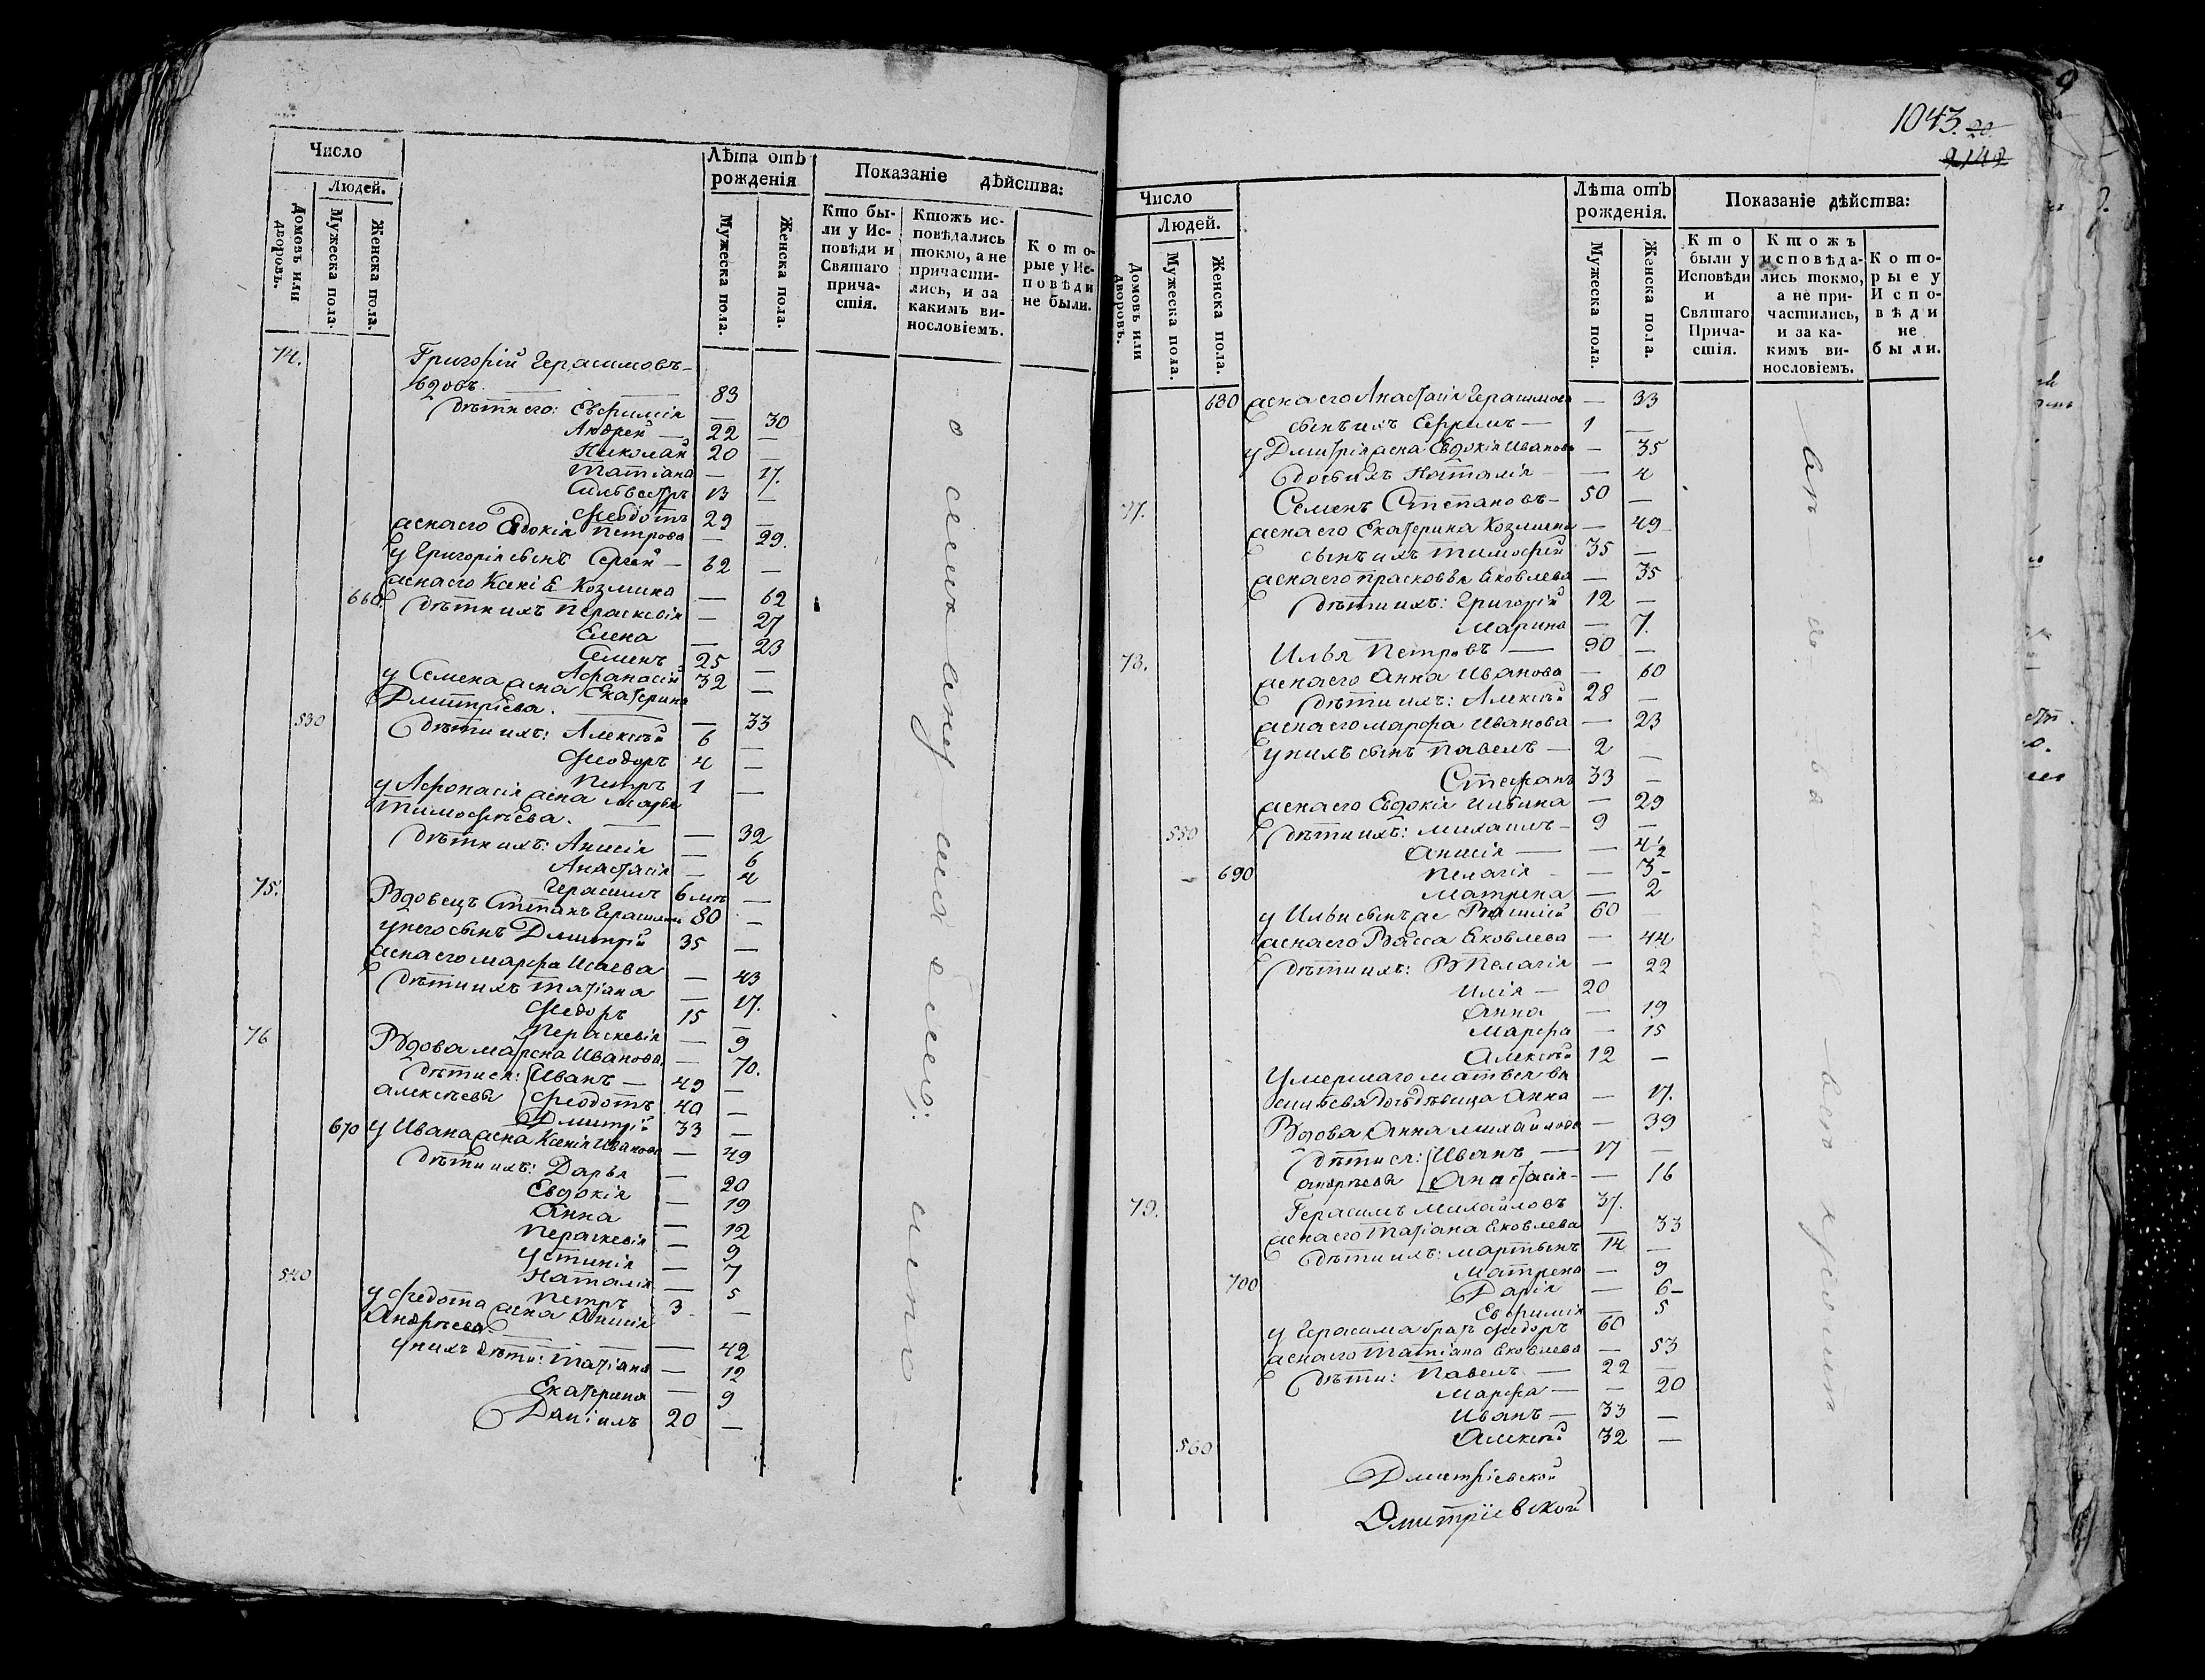 Число
Людей.
Домовъ или дворовъ.
Мужеска пола.
Женска пола.
Лѣта отъ рожденія
Мужеска пола.
Женска пола.
Показаніе дѣйства:
Кто бы-
ли у Ис-
повѣди и
Святаго
прича-
стія.
Ктожъ ис-
повѣдались
токмо, а не
причасти-
лись, и за
какимъ ви-
нословіемъ.
Кото-
рые у Ис-
повѣди
не были.
74. Григорій Герасимовъ
вдовъ. — 83
дѣти его: Евфимія — 30
Андрей — 22 —
Николай 20 —
Татіана — 17.
Силвестръ 13 —
Феодотъ 29 —
жена его Евдокія Петрова — 29.
у Григорія сынъ Сергей — 62 —
жена его Козмина — 62
660. дѣти ихъ Пераскевія — 27
Елена — 23
Семенъ 25 —
Афанасій 32 —
у Семена жена Екатерина
Дмитріева. — 33
530 дѣти ихъ: Алексѣй 6 —
Феодоръ 4 —
Петръ 1 —
у Афонасія жена Марья
Тимофѣева. — 32
дѣти ихъ: Анисія — 6
Анастасія — 4
Герасимъ 6 —
75. Вдовецъ Степанъ Герасимовъ 80 —
у него сынъ Дмитрій 35 —
жена его Марфа Исаева — 43
дѣти ихъ Татіана — 17.
Федоръ 15 —
Пераскевія — 9
76 Вдова Марфа Иванова — 70.
дѣти ея: Иванъ — 49 —
Алексѣевы Феодотъ 40 —
Дмитрій 33 —
670 у Ивана жена Ксенія Иванова — 49
дѣти ихъ: Дарья — 20
Евдокія — 19
Анна — 12
Пераскевія — 9
Устинія — 7
Наталія — 5
540 Петръ 3 —
у Федота жена Анисія
Андрѣева — 42
у нихъ дѣти: Татіана — 12
Екатерина — 9
Даніилъ 20 —
1043. 20.
2142
Число
Людей.
Домовъ или дворовъ.
Мужеска пола.
Женска пола.
Лѣта отъ
рожденія.
Мужеска пола.
Женска пола.
Показаніе дѣйства:
Кто
были у
Исповѣди
и
Святаго
Прича-
стія.
Ктожъ
исповѣда-
лись токмо,
а не при-
частились,
и за ка-
кимъ ви-
нословіемъ.
Кото-
рые у
Испо-
вѣди
не
были.
680 жена его Анастасія Герасимова — 33
сынъ ихъ Ефремъ — 1 —
у Дмитрія жена Евдокія Иванова — 35
дочь ихъ Наталія — 4
77. Семенъ Степановъ — 50 —
жена его Екатерина Козмина — 49
сынъ ихъ Тимофей 35 —
жена его Прасковья Яковлева — 35
дѣти ихъ: Григорій 12 —
Марина — 7.
78. Илья Петровъ — 90 —
жена его Анна Иванова — 60
дѣти ихъ: Алексѣй 28 —
жена его Марфа Иванова — 23
у нихъ сынъ Павелъ — 2 —
Стефанъ 33 —
жена его Евдокія Ильина — 29
550 дѣти ихъ: Михаилъ — 9 —
Анисія — 4
690 Пелагія — 3
Матрена — 2
у Ильи сынъ же 60 —
жена его Васса Яковлева — 44
дѣти ихъ: Пелагія — 22
Илія — 20
Анна — 19
Марфа — 15
Алексѣй 12 —
Умершаго Матвея
дочь дѣвица Анна — 17.
Вдова Анна Михайлова — 39
дѣти ея: Иванъ — 17 —
Андрѣевы Анастасія — 16
79. Герасимъ Михайловъ 37.
жена его Татіана Яковлева — 33
дѣти ихъ: Мартынъ 14 —
Матрена — 9
700 Дарія — 6
Евфимія — 5
у Герасима братъ Федоръ 60
жена его Татіана Яковлева — 53
дѣти: Павелъ — 22 —
Марфа — 20
Иванъ — 33 —
560 Алексѣй 32 —
Дмитріевской
Дмитріевской